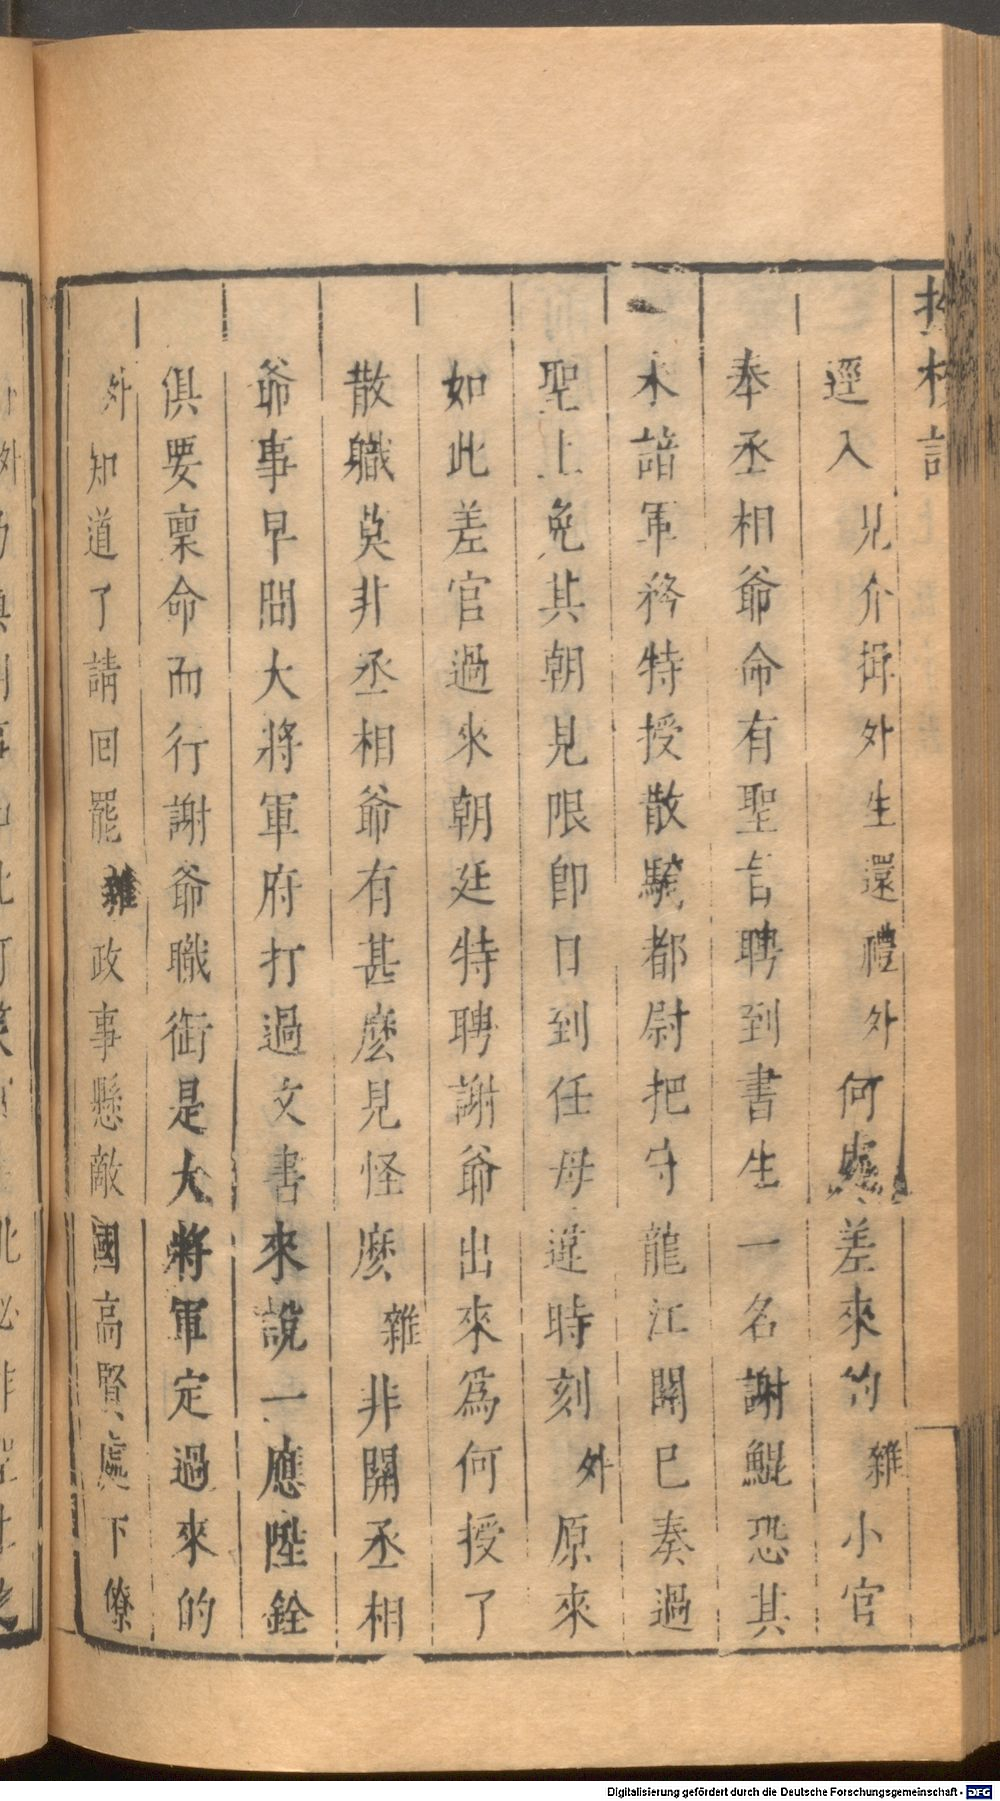 投梭記
逕入見介揖外生還禮外何處差來的雜小官
奉丞相爺命有聖旨聘到書生一名謝鯤恐其
未諳軍務特授散騎都尉把守龍江關已奏過
聖上免其朝見限即日到任毋違時刻外原來
如此差官過來朝廷特聘謝爺出來爲何授了
散職莫非丞相爺有甚麽見怪麽雜非關丞相
爺事早間大將軍府打過文書來說一應陞銓
俱要稟命而行謝爺職銜是大將軍定過來的
外知道了請回罷雜政事懸敵國高賢處下僚
Digitalisierung gefördert durch die Deutsche Forschungsgemeinschaft - DFG